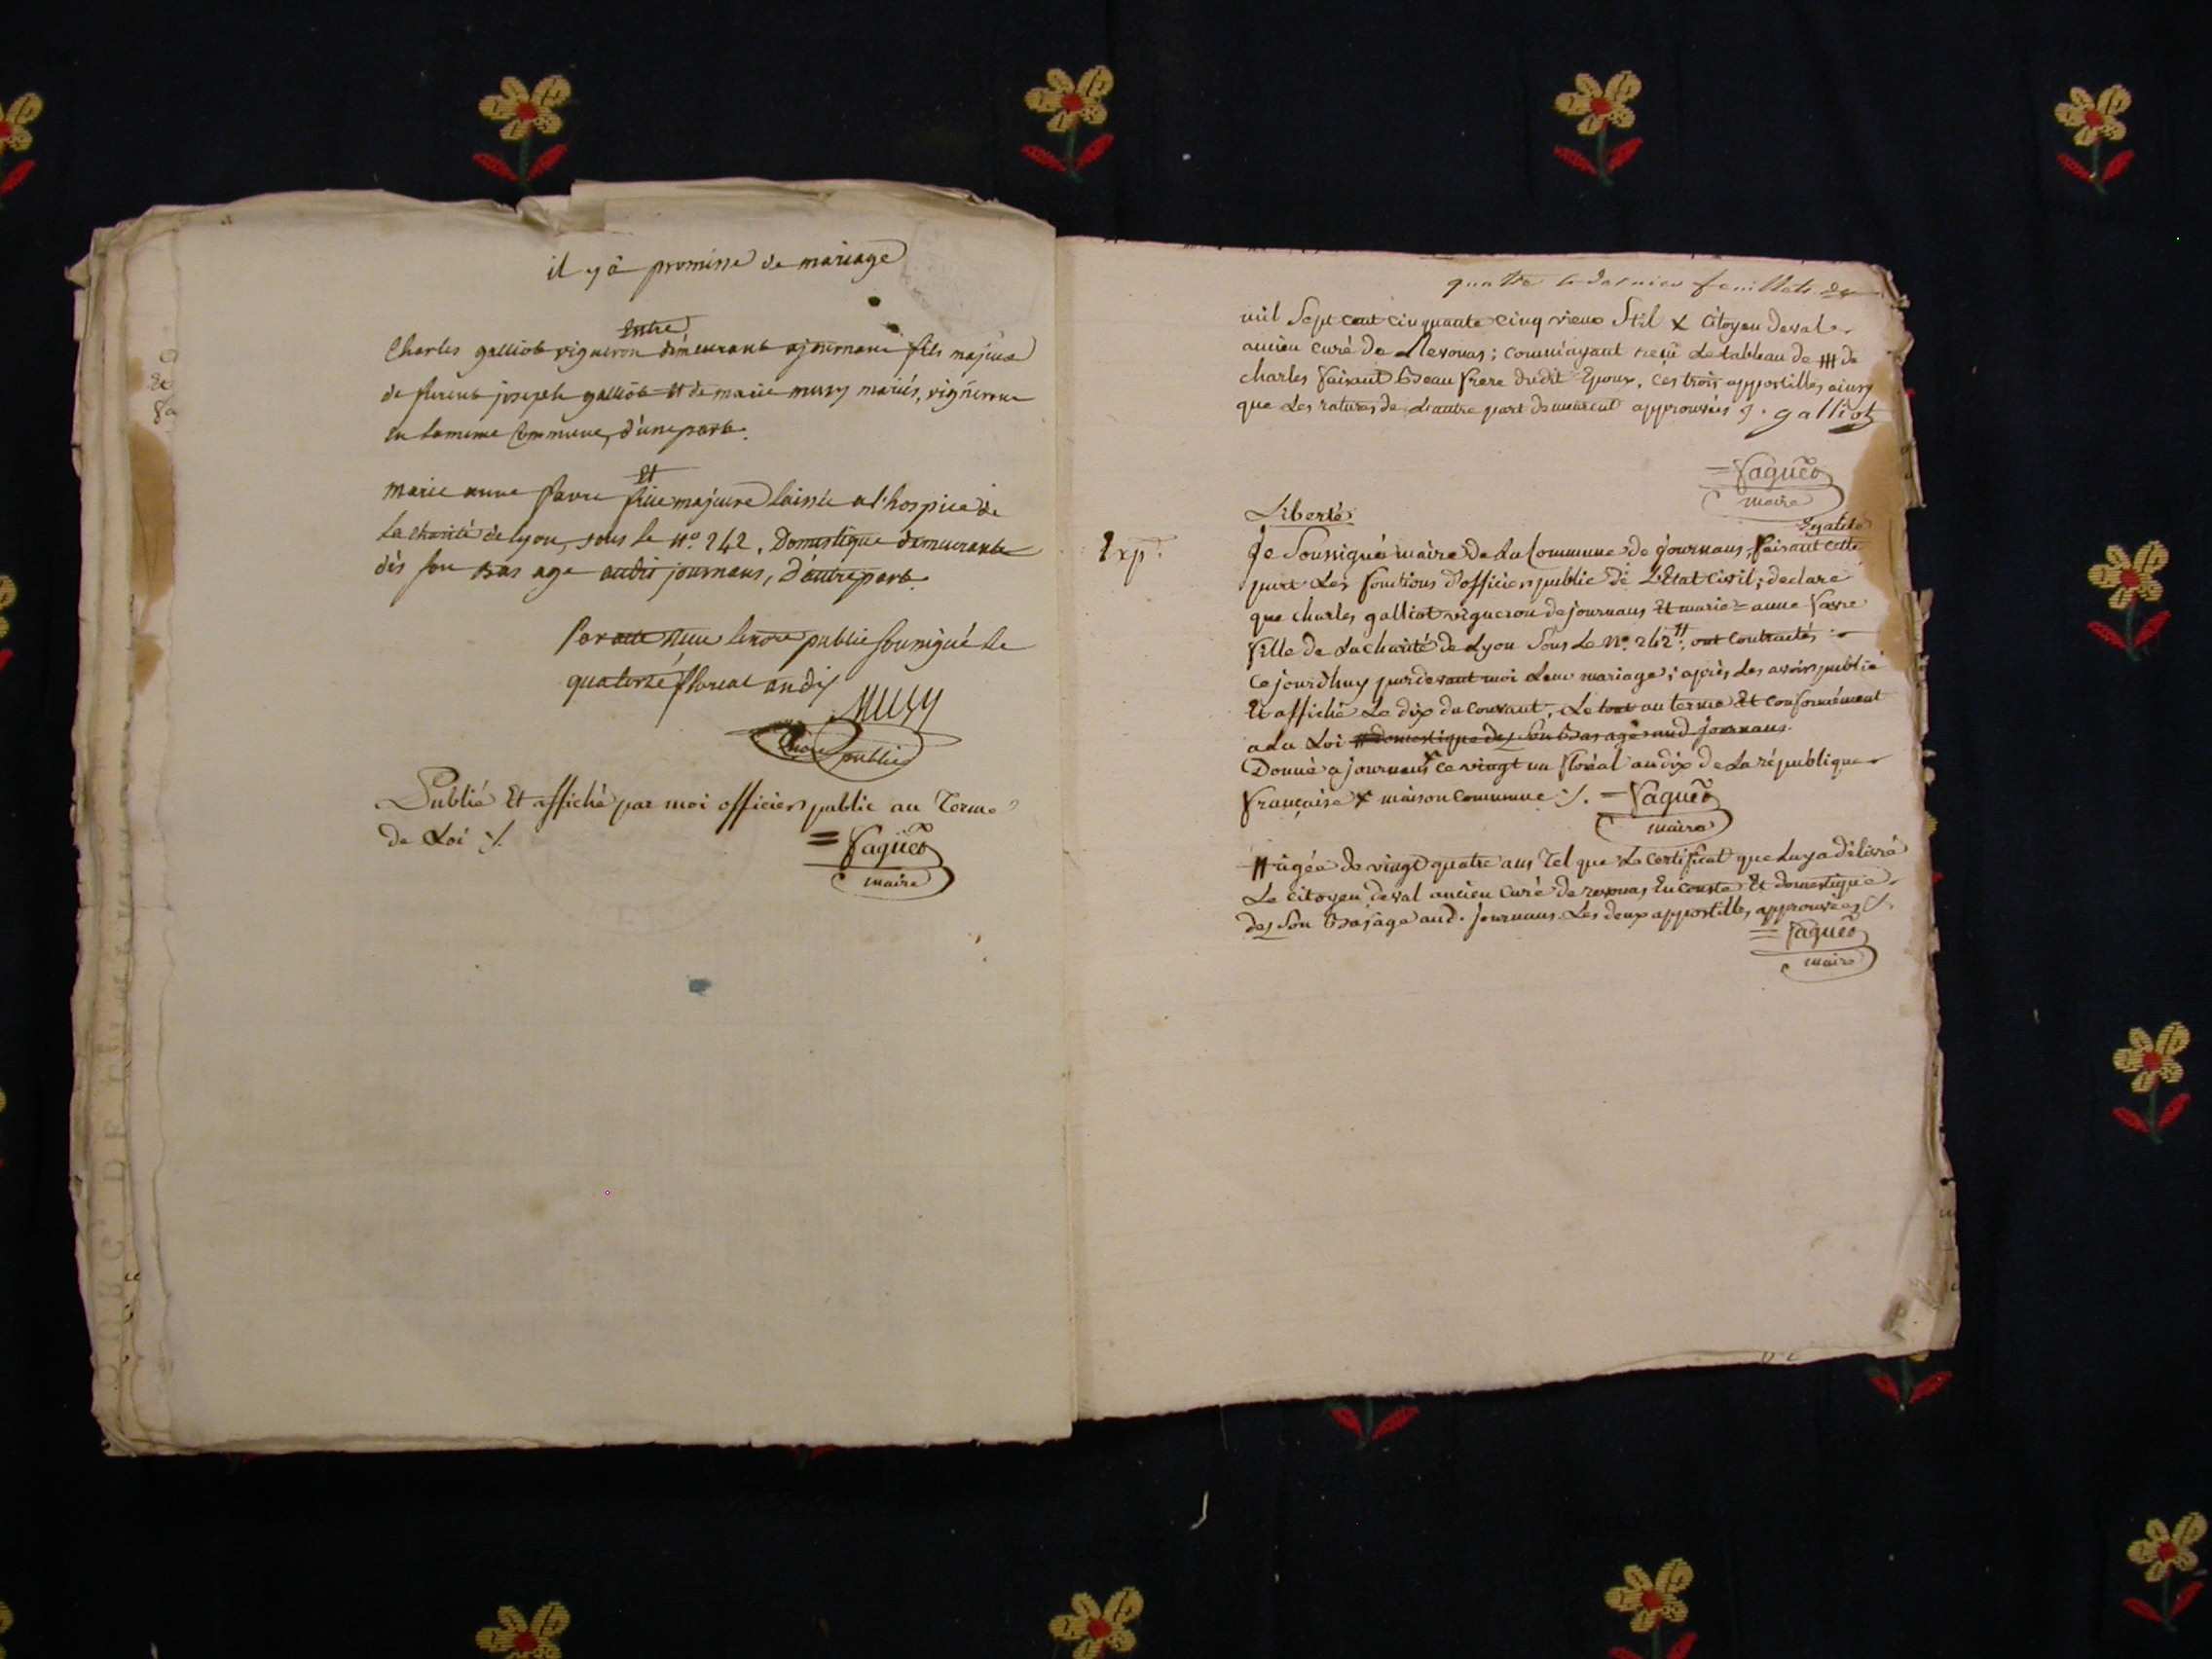 il y â promisse de mariage
Entre
Charles galliot vigneron démeurant ajournans fils majeur
de joseph galliot Et de marie mury mariés, vigneron
en la meme Commune, d'une part.
Et
marie anne favre fille majeure laissée a l'hospice de
la charité de lyon, sous le N.o 242, Domestique demeurante
dès son bas age audit journans, d'autre part.
public soussigné le
quatorze floreal an dix
Mury
public
Publié Et affiché par moi officier public au Terme
de Loi ./.
= Vaguet
maire
quatre feuillets
mil Sept cent cinquante cinq vieux Stil x Citoyen deval
ancien curé de Revonas ; comm'ayant reçu Le tableau de ## de
charles Vaisant Beau frere dudit Epoux. Ces trois appostilles ainsy
que Les ratures de L'autre part demeurent approuvées ./. galliot
= Vaguet
maire
Liberté Egalité
Exp. Je Soussigné maire de La Commune de journans, faisant cette
part Les fonctions d'officier public de L'Etat Civil ; declare
que charles galliot vigneron de journans Et marie = anne Favre
fille de La charité de Lyon Sous Le N.o 242 # ; ont Contractés
Ce jourdhuy pardevant moi Leur mariage ; après Les avoir publié
Et affiché Le dix du Courant. Le tout au terme Et Conformément
a La Loi # domestique des Son Bas age aud. journans.
Donné a journans x Ce vingt un floréal an dix de La république
française x maison Commune ./. = Vaguet
maire
# agée de vingt quatre ans Tel que Le Certificat que Luy a délivré
Le Citoyen deval ancien Curé de revonas En Conste Et domestique
des Son Bas age aud. journans. Les deux appostilles approuvées ./.
= Vaguet
maire